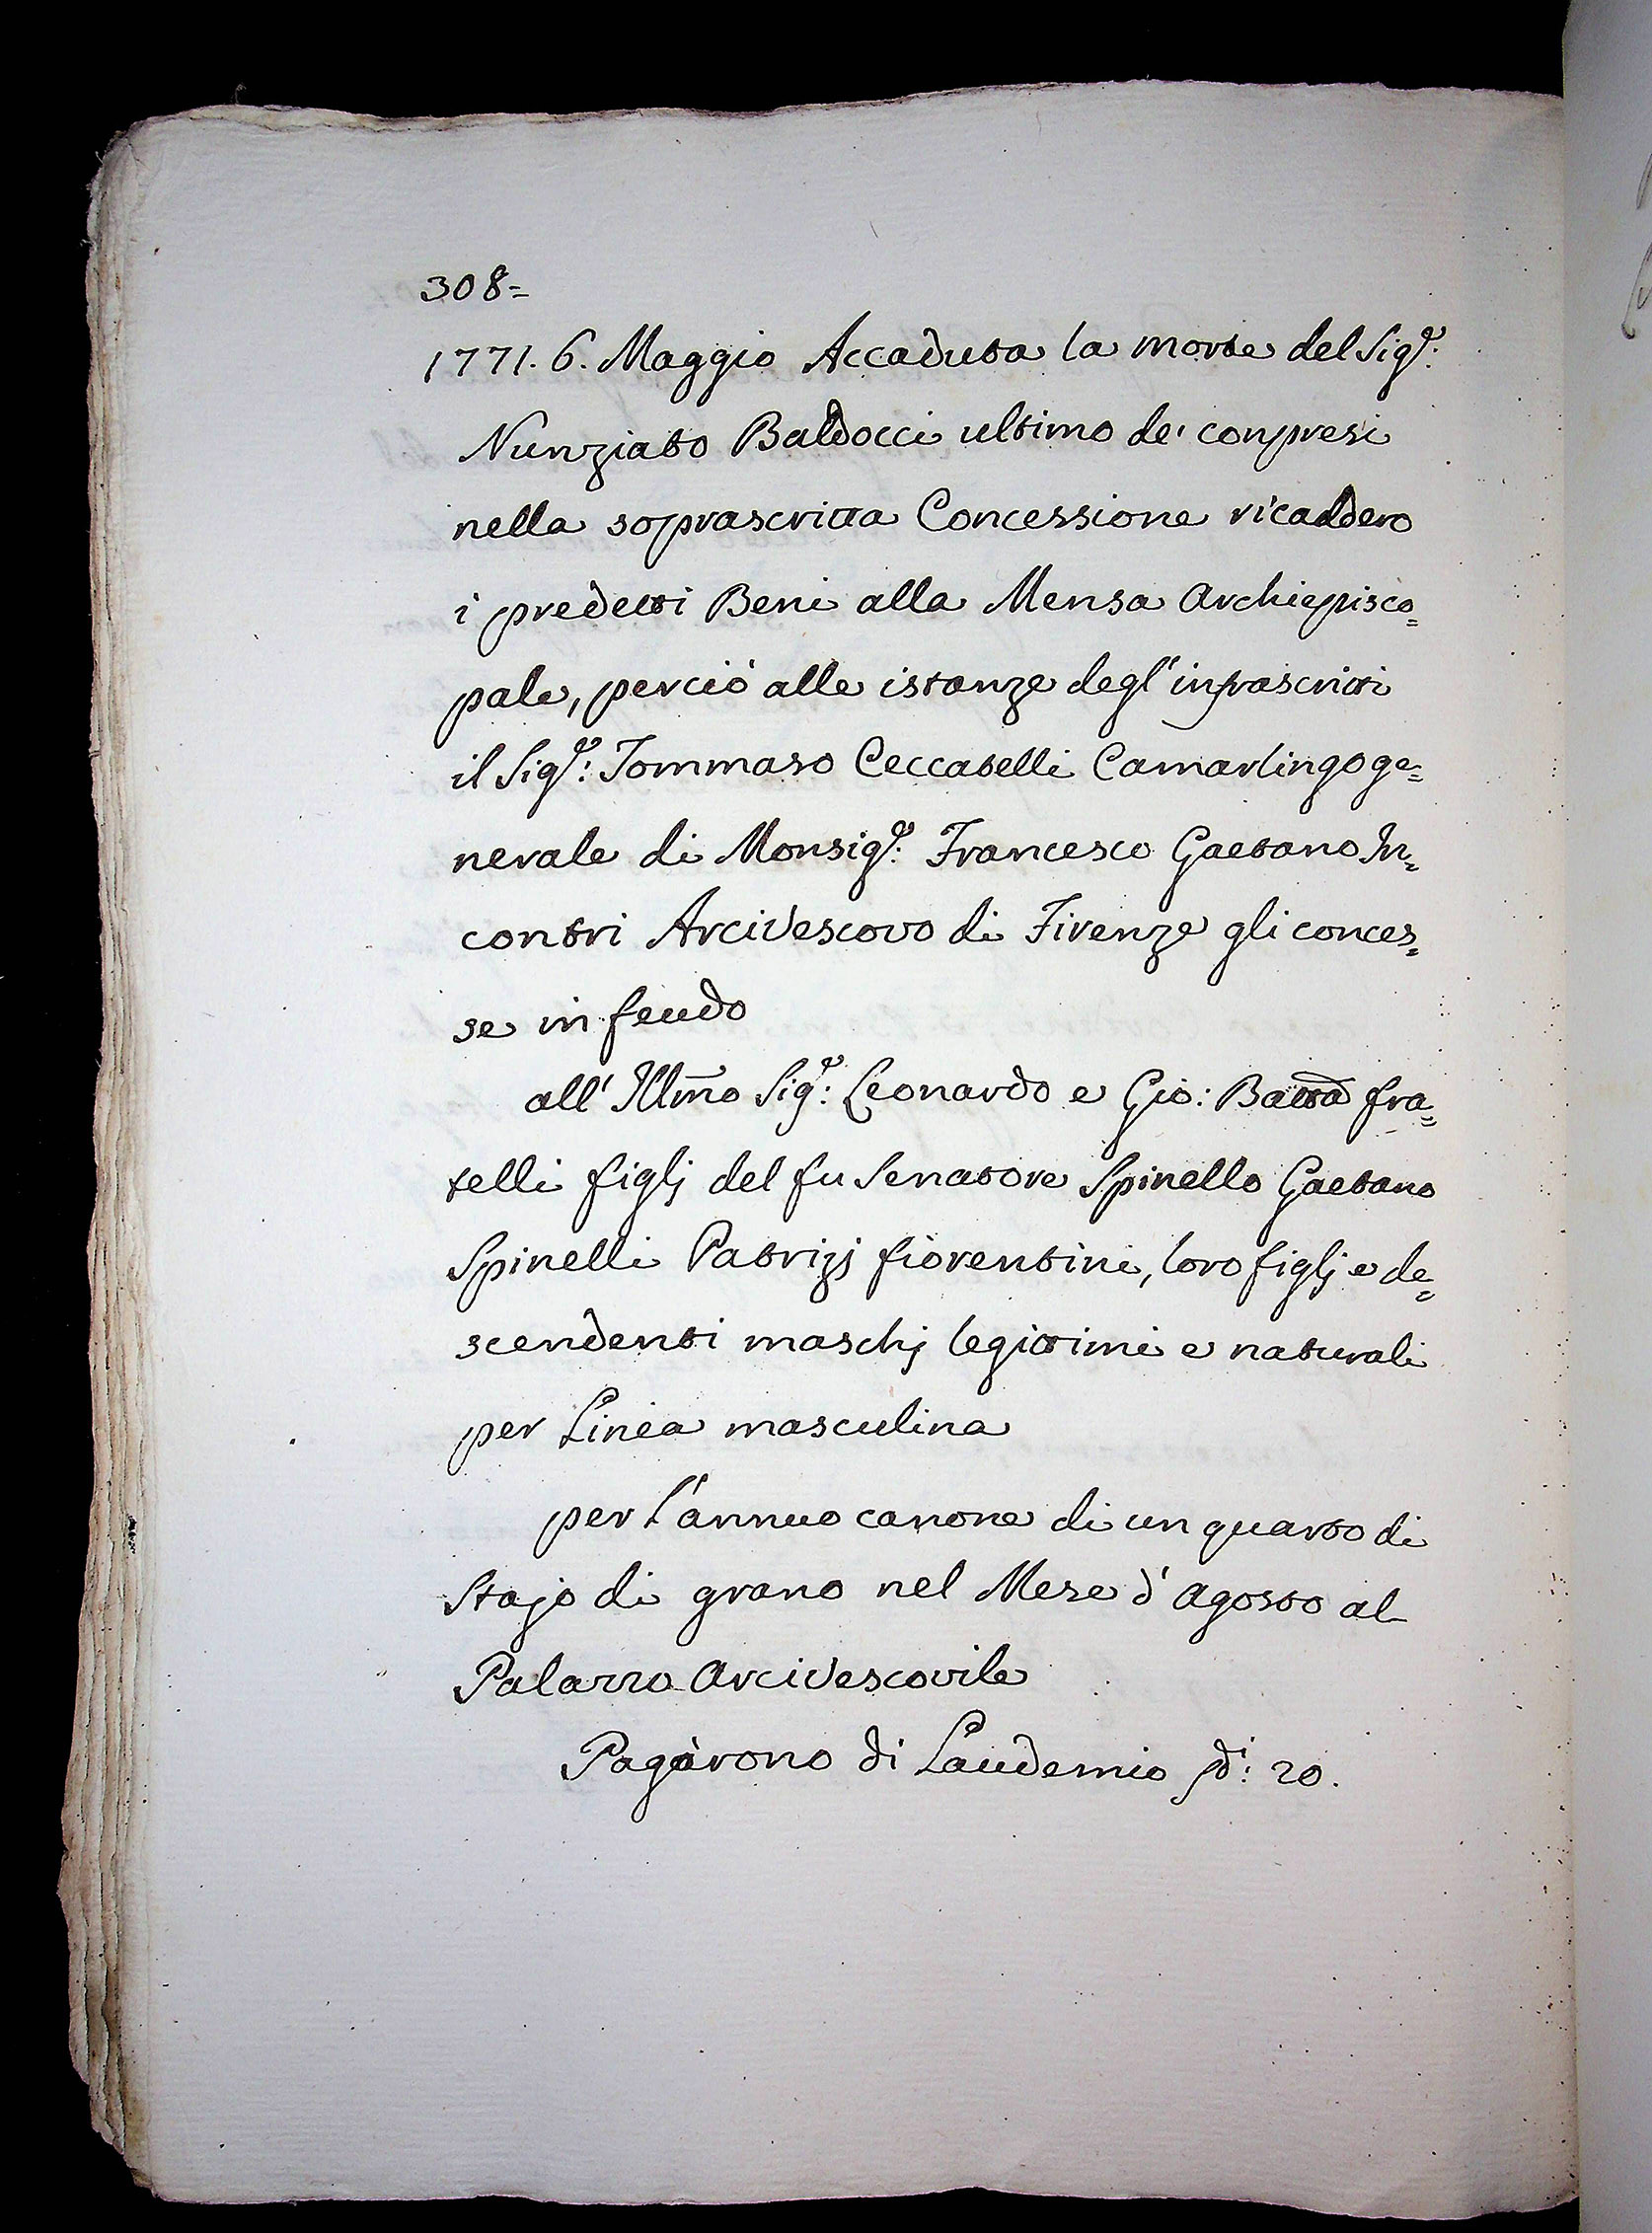 308=
1771. 6. Maggio Accaduta la morte del Sig.r:
Nunziato Baldocci ultimo de' conpresi
nella soprascritta Concessione ricaddero
i predetti Beni alla Mensa Archiepisco=
pale, perciò alle istanze degl'infrascritti
il Sig.r: Tommaso Ceccatelli Camarlingo ge=
nerale di Monsig.r: Francesco Gaetano In=
contri Arcivescovo di Firenze gli conces=
se in feudo
all' Illmo Sig.r: Leonardo e Gio: Batta fra=
telli figlj del fu Senatore Spinello Gaetano
Spinelli Patrizj fiorentini, loro figlj e de=
scendenti maschj legittimi e naturali
per Linea masculina
per l'annuo canone di un quarto di
Stajo di grano nel Mese d'Agosto al
Palazzo Arcivescovile
Pagàrono di Laudemio 20.